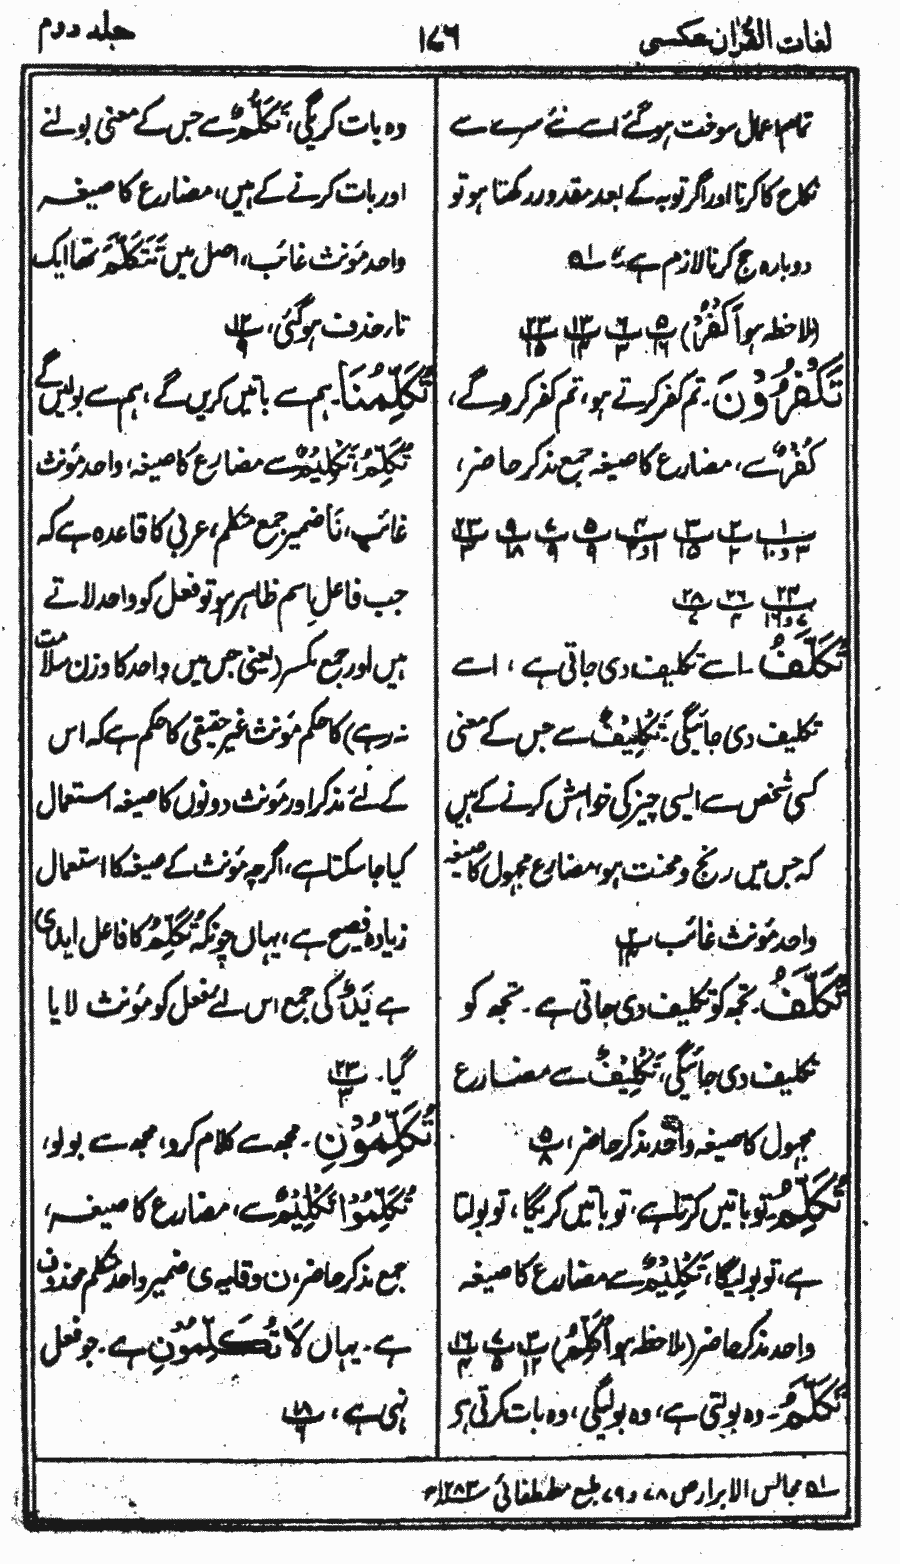 لغات القرآن عکسی
۱۷۶
جلد دوم
تمام اعمال سوخت ہوگئے اسے نئے سرے سے
نکاح کا کرنا اور اگر توبہ کے بعد مقدور رکھتا ہو تو
دوبارہ حج کرنا لازم ہے۔ ۱؎
(ملاحظہ ہو أَكَفَرْ) پ۵ ۱۶ پ۶ ۳ پ۱۳ ۱۴ پ۲۳ ۱۵
تَكْفُرُوْنَ۔ تم کفر کرتے ہو، تم کفر کرو گے،
كُفْرٌ سے، مضارع کا صیغہ جمع مذکر حاضر،
پ۱ ۳ و ۱۰ پ۲ ۲ پ۳ ۱۵ پ۴ ۲ و ۱ پ۵ ۹ پ۷ ۹ پ۹ ۱۸ پ۲۳ ۳
پ۲۴ ۷ و ۱۶ پ۲۶ ۴ پ۲۸ ۷
تُكَلَّفُ۔ اسے تکلیف دی جاتی ہے ، اسے
تکلیف دی جائیگی۔ تَكْلِيْفٌ سے جس کے معنی
کسی شخص سے ایسی چیز کی خواہش کرنے کے ہیں
کہ جس میں رنج و محنت ہو، مضارع مجہول کا صیغہ
واحد مؤنث غائب پ۲ ۱۴
تُكَلَّفُ۔ تجھ کو تکلیف دی جاتی ہے۔ تجھ کو
تکلیف دی جائیگی، تَكْلِيْفٌ سے مضارع
مجہول کا صیغہ واحد مذکر حاضر، پ۵ ۸
تُكَلِّمُ۔ تو باتیں کرتا ہے، تو باتیں کریگا، تو بولتا
ہے، تو بولیگا، تَكْلِيْمٌ سے مضارع کا صیغہ
واحد مذکر حاضر (ملاحظہ ہو أُكَلِّمُ) پ۳ ۱۲ پ۷ ۵ پ۱۶ ۴
تَكَلَّمُ۔ وہ بولتی ہے، وہ بولیگی، وہ بات کرتی ہے
وہ بات کریگی، تَكَلُّمٌ سے جس کے معنی بولنے
اور بات کرنے کے ہیں، مضارع کا صیغہ
واحد مؤنث غائب، اصل میں تَتَكَلَّمُ تھا ایک
تار حذف ہوگئی، پ۱۲ ۹
تُكَلِّمُنَا۔ ہم سے باتیں کریں گے، ہم سے بولیں گے
تُكَلِّمُ، تَكْلِيْمٌ سے مضارع کا صیغہ، واحد مؤنث
غائب، نَا ضمیر جمع متکلم، عربی کا قاعدہ ہے کہ
جب فاعل اسم ظاہر ہو تو فعل کو واحد لاتے
ہیں اور جمع مکسر (یعنی جس میں واحد کا وزن سلامت
نہ رہے) کا حکم مؤنث غیر حقیقی کا حکم ہے کہ اس
کے لئے مذکر اور مؤنث دونوں کا صیغہ استعمال
کیا جا سکتا ہے، اگرچہ مؤنث کے صیغہ کا استعمال
زیادہ فصیح ہے، یہاں چونکہ تُكَلِّمُ کا فاعل ایدی
ہے يَدٌ کی جمع اس لئے فعل کو مؤنث لایا
گیا۔ پ۲۳ ۳
تُكَلِّمُوْنِ۔ مجھ سے کلام کرو، مجھ سے بولو،
تُكَلِّمُوْا تَكْلِيْمٌ سے، مضارع کا صیغہ،
جمع مذکر حاضر، ن وقایہ ی ضمیر واحد متکلم محذوف
ہے۔ یہاں لَا تُكَلِّمُوْنِ ہے۔ جو فعل
نہی ہے، پ۱۸ ۶
۱؎ مجالس الابرار ص ۷۸ و ۷۹ طبع مصطفائی ۱۲۸۳ھ